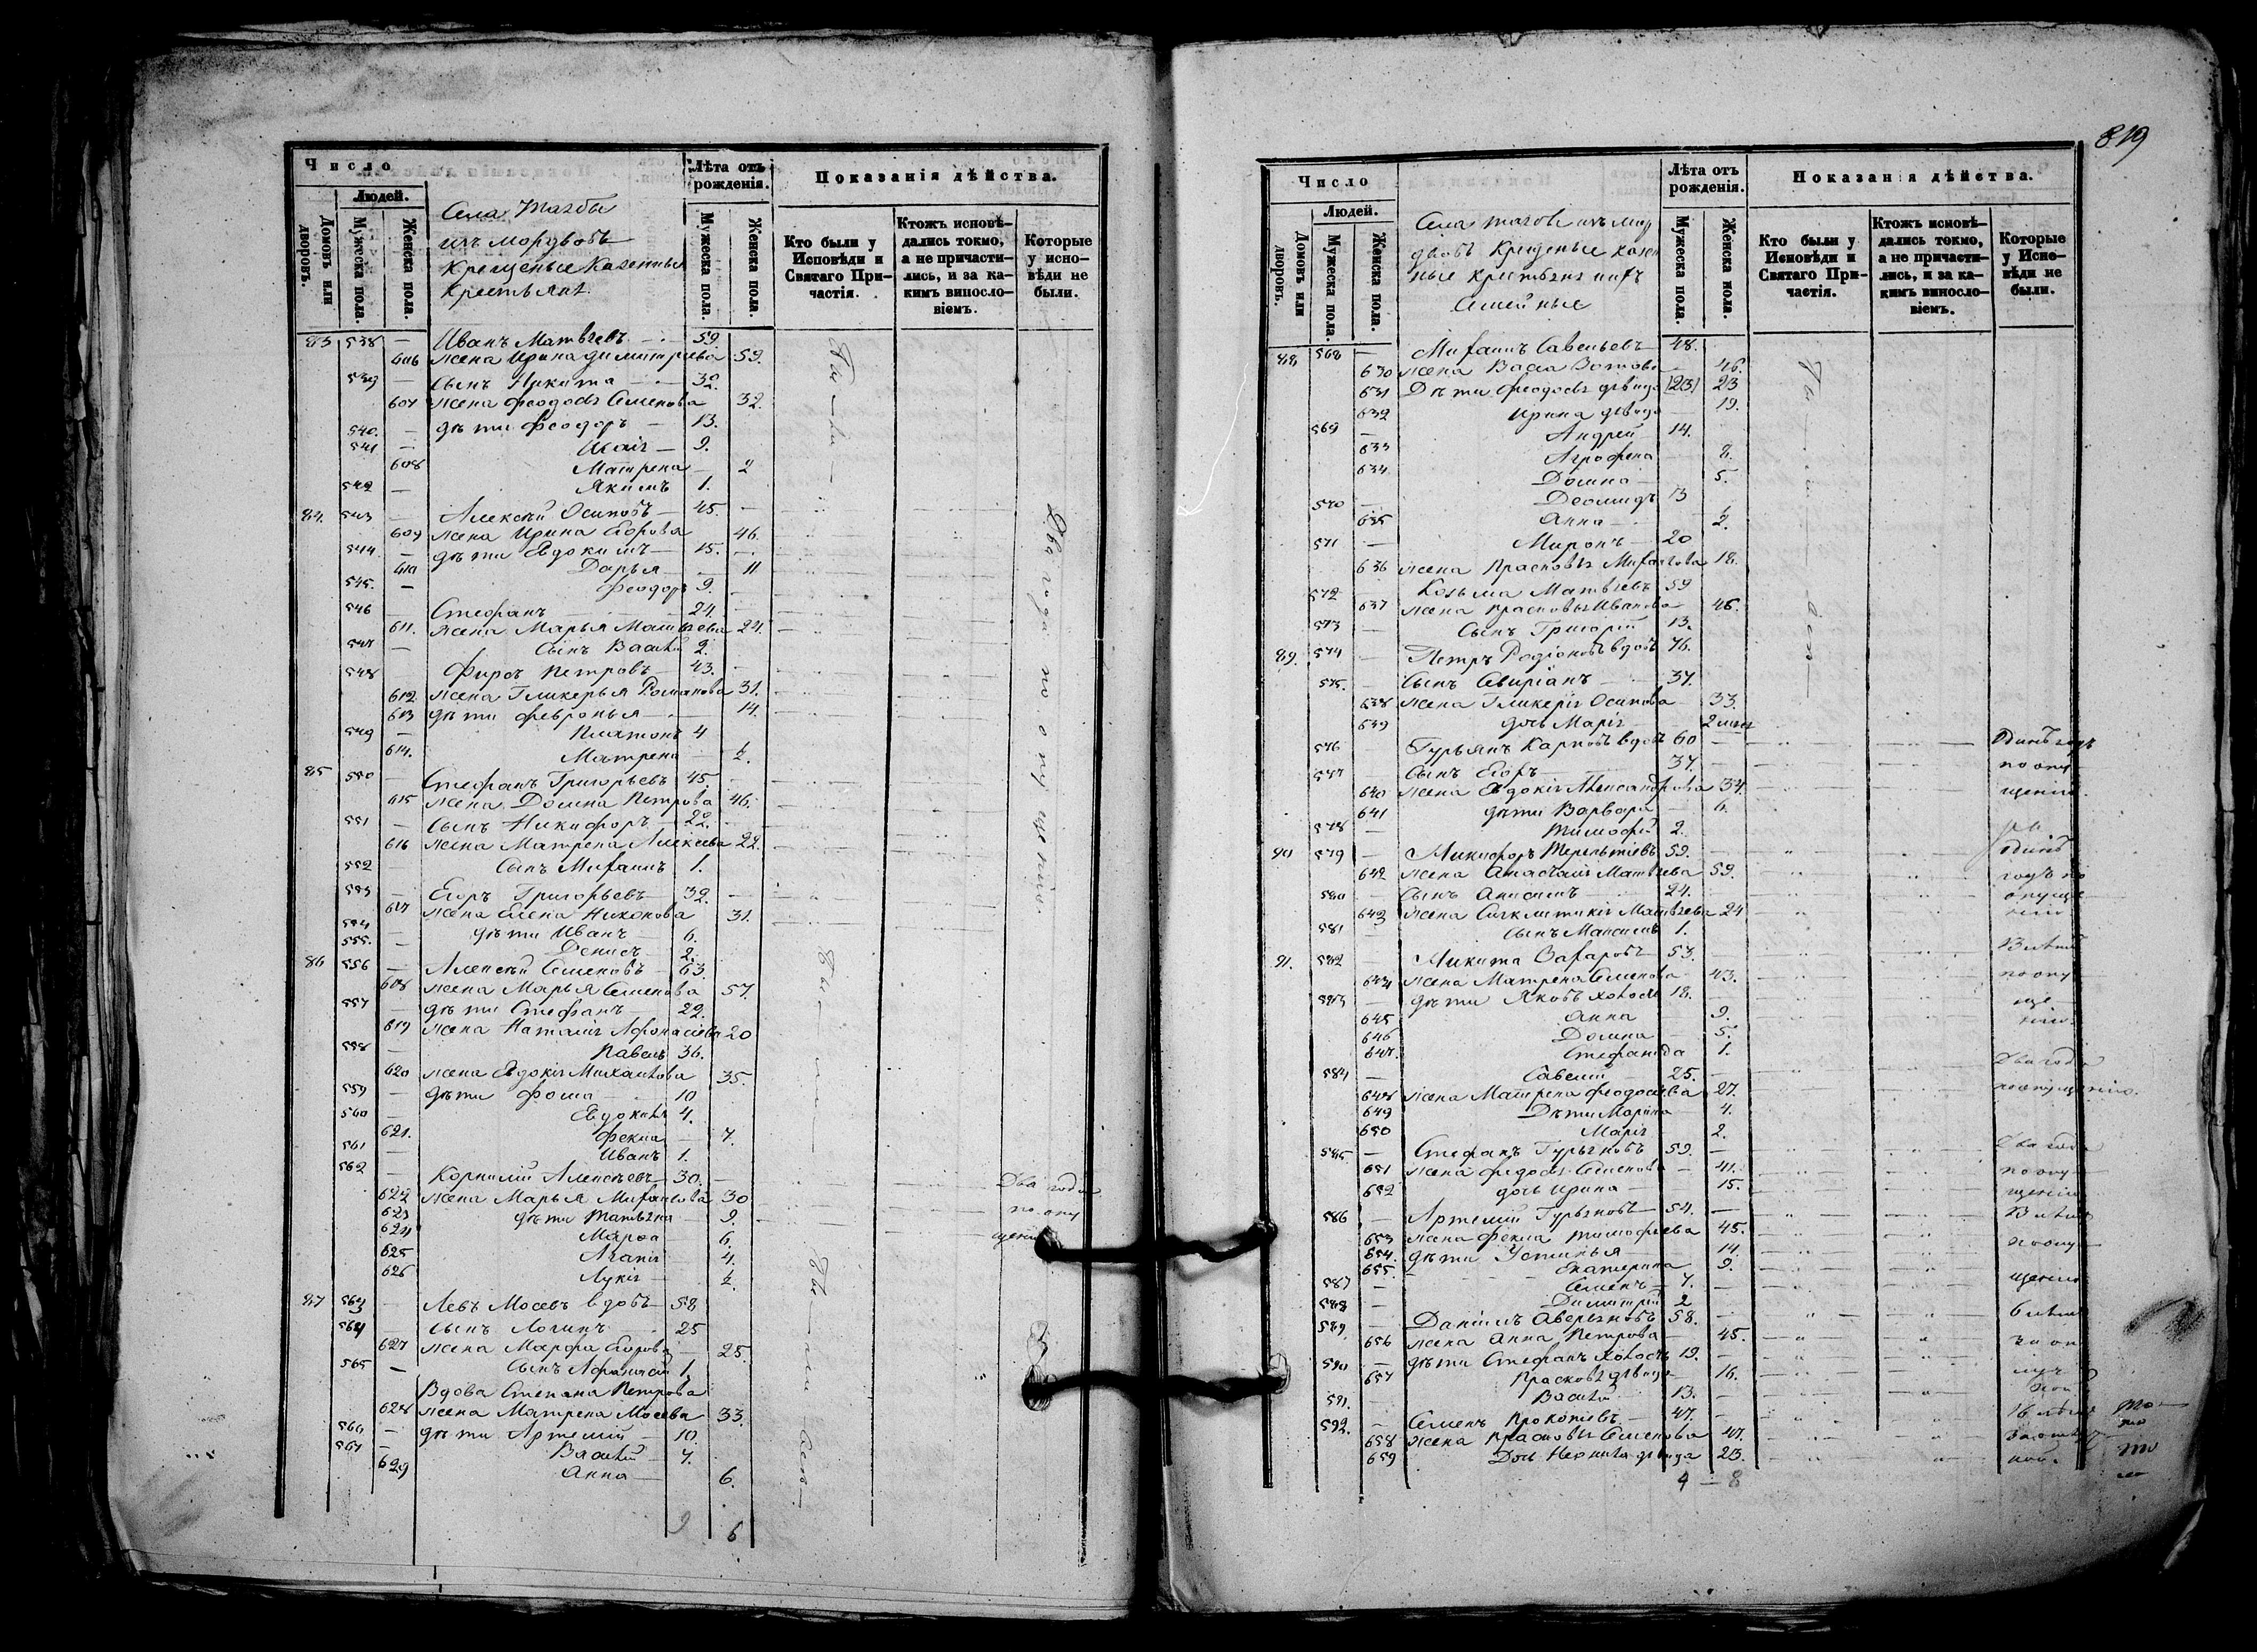 Число
Людей.
Домовъ или дворовъ.
Мужеска пола.
Женска пола.
Села
изъ мордвовъ
крещеные казенные
крестьяне
Лѣта отъ рожденія.
Мужеска пола.
Женска пола.
Показанія дѣйства.
Кто были у Исповѣди и Святаго Причастія.
Ктожъ исповѣдались токмо, а не причастились, и за какимъ винословіемъ.
Которые у исповѣди не были.
83 538 — Иванъ Матвѣевъ — 59.
606 жена Ирина Димитриева 59.
539 — сынъ Никита — 32.
607 жена Феодосья Семенова 32.
540. — дѣти Феодоръ — 13.
541 — 9.
608 Матрена — 2
542 — Якимъ 1.
84. 543 — Алексѣй Осиповъ — 45. —
609 жена Ирина Егорова 46.
544 — дѣти Евдокимъ — 15. —
610 Дарья — 11
545. — Феодоръ 9.
546 — Стефанъ — 24. —
611. жена Марья Матвѣева 24.
547 — сынъ Василій 2.
548 Фирсъ Петровъ — 43. —
612 жена Гликерья Романова 31.
613 дѣти Февронья — 14.
549 — Платонъ 4
614. Матрена — ½.
85 550 — Стефанъ Григорьевъ 45. —
615 жена Домна Петрова 46.
551 — сынъ Никифоръ — 22. —
616 жена Матрена Алексеева 22.
552 — сынъ Михаилъ 1.
553 — Егоръ Григорьевъ — 32. —
617 жена Елена Никонова 31.
554 — дѣти Иванъ — 6.
555. — Денисъ — 2.
Два года по опущенію.
86 556 — Алексѣй Семеновъ — 63.
618 жена Марья Семенова 57.
557 — дѣти Стефанъ — 22.
619 жена Наталія Афонасиева 20
558 — Павелъ 36.
620 жена Евдокія Михаилова 35.
559 — дѣти Фома — 10
560 — Евдокимъ 4.
621. Фекла — 7.
561 — Иванъ 1.
562 — Корнилій Алексѣевъ — 30. — Два года
622 жена Марья Михаилова 30
623 дѣти Татьяна — 9. по опу
624 Марфа — 6. щенію
625 Агапія — 4.
626 Лукія — ½.
87 563 — Левъ Мосевъ вдовъ — 58
564 сынъ Логинъ — 25
627 жена Марфа Егорова — 25.
565 — сынъ Афанасій 1.
Вдова Степана Петрова
628 жена Матрена Мосева 33.
566 — дѣти Артемій — 10.
567 — Василій — 7.
629 Анна — 6.
9 6
819
Число
Людей.
Домовъ или дворовъ.
Мужеска пола
Женска пола.
Села изъ мор
двовъ крещеные казен
ные крестьяне и ихъ
семейные
Лѣта отъ рожденія.
Мужеска пола.
Женска пола.
Показанія дѣйства.
Кто были у Исповѣди и Святаго Причастія.
Ктожъ исповѣдались токмо, а не причастились, и за какимъ винословіемъ.
Которые у Исповѣди не были.
88 568 — Михаилъ Савельевъ — 48.
630 жена Васса Зотова 46.
631 Дѣти Феодосья дѣвица (23) 23
632 Ирина дѣвица 19.
569 — Андрей — 14.
633 Агрофена — 8.
634 Домна — 5.
570 — Деомидъ 13
635 Анна — 2.
571 — Миронъ — 20
636 жена Прасковья Михайлова 18.
572 — Козьма Матвѣевъ 59
637 жена Прасковья Иванова 46.
573 — сынъ Григорій 13.
89. 574 — Петръ Родіоновъ вдовъ 76.
575. — сынъ Авиріанъ — 37.
638 жена Гликерія Осипова — 33.
639 дочь Марія — 2
576 — Гурьянъ Карповъ вдовъ 60 — Одинъ годъ
577 — сынъ Егоръ — 37. по опу
640 жена Евдокія Александрова 34. щенію
641 дѣти Варвара — 6.
578 — Тимофей 2.
90 579 — Никифоръ Терентіевъ 59. — одинъ
642 жена Анастасія Матвеева 59. годъ по
580 — сынъ Анисимъ 24. опуще
643 жена Синклитикія Матвѣева 24 нію
581 — сынъ Максимъ 1.
91. 582 — Никита Захаровъ 53. — 3 лѣта
644 жена Матрена Семенова 43. по опу
583 — дѣти Яковъ холостъ 18. ще
645 Анна — 9. нію.
646 Домна — 5.
647. Стефанида 1.
584 — Савелій — 25. — Два года
648 жена Матрена Феодосиева 27. по опущенію.
649 Дѣти Марина — 4.
650 Марія — 2.
585. — Стефанъ Гурьяновъ — 59. — Два года
651 жена Федосья Семенова — 41. по опу
652 дочь Ирина — 15. щенію
586 — Артемій Гурьяновъ — 54. — 3 лѣта
653 жена Фекла Тимофеева 45. по опу
654. дѣти Устинья — 14.
655. Екатерина 9.
587 — Семенъ — 7. щенію
588 — Димитрій 2
589 — Даніилъ Аверьяновъ 58. 6 лѣтъ
656 жена Анна Петрова — 45. за оп
590 — дѣти Стефанъ холостъ 19.
657 Прасковья дѣвица 16.
591. — Василій 13.
592. — Семенъ Прокопіевъ — 47. — 16 лѣтъ
658 жена Прасковья Семенова 47.
659 Дочь Неонила дѣвица 23.
9 — 8